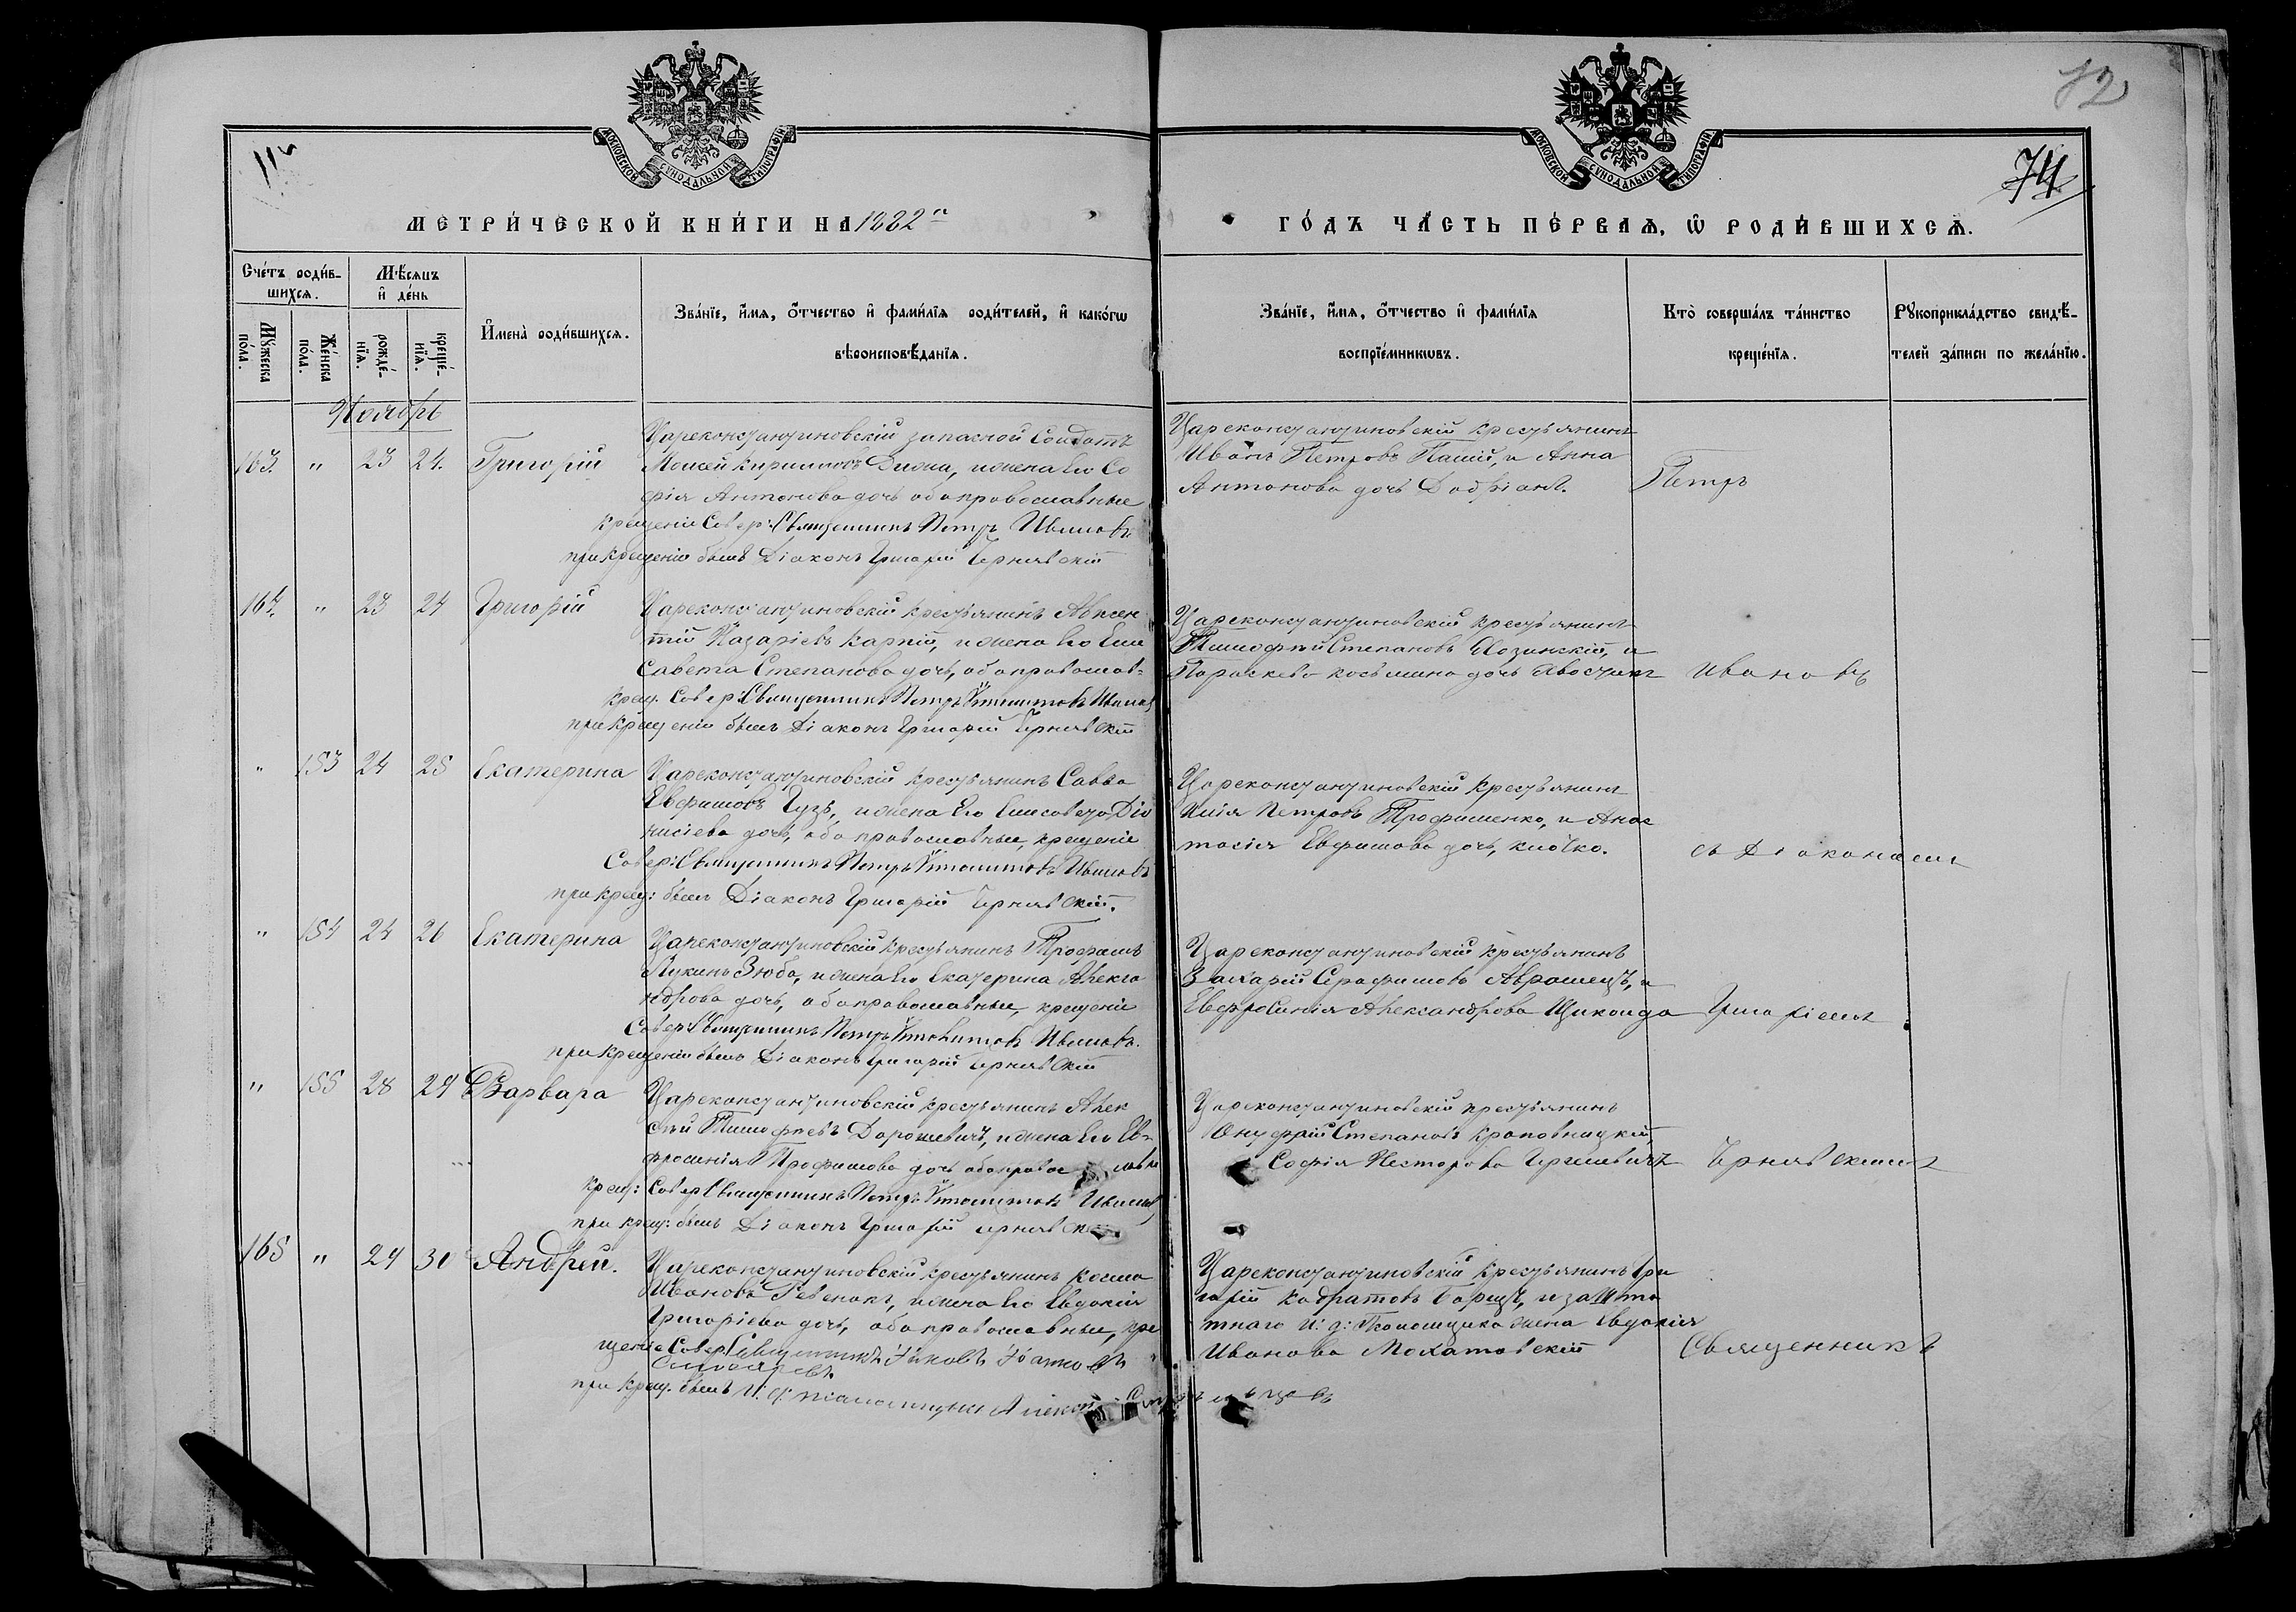 72
74
МОСКОВСКОЙ СѴНОДАЛЬНОЙ ТИПОГРАФІИ
МОСКОВСКОЙ СѴНОДАЛЬНОЙ ТИПОГРАФІИ
МЕТРИ́ЧЕСКОЙ КНИ́ГИ НА 1882
ГО́ДЪ ЧА́СТЬ ПЕ́РВАѦ, Ѡ РОДИ́ВШИХСѦ.
Сче́тъ роди́в-
шихсѧ.
Мꙋ́жеска по́ла.
Же́нска по́ла.
Мѣ́сѧцъ и де́нь
рожде́-нїѧ.
креще́-нїѧ.
И҆мена̀ роди́вшихсѧ.
Зва́нїе, и҆́мѧ, ѻ҆́тчество и҆ фами́лїѧ роди́телей, и҆ како́гѡ
вѣроисповѣ́данїѧ.
Зва́нїе, и҆́мѧ, ѻ҆́тчество и҆ фами́лїѧ
воспрїе́мникѡвъ.
Кто̀ соверша́лъ та́инство
креще́нїѧ.
Рꙋкоприкла́дство свидѣ́-
телей за́писи по жела́нїю.
Ноябрь
163. " 23 24. Григорій
Цареконстантиновскій запасной Солдатъ
Моисей Кириловъ Дижа, и жена его Со
фія Антонова дочь оба православные
крещеніе Совер: Священникъ Петръ Ивановъ
при крещеніи былъ Діаконъ Григорій Чернявскій
Цареконстантиновскій крестьянинъ
Иванъ Петровъ Палій, и Анна
Антонова дочь
Петръ
164. " 23 24 Григорій
Цареконстантиновскій крестьянинъ Авксен
тій Назаріевъ Карпій, и жена его Ели
савета Степанова дочь, оба православ-
крещ. Совер: Священникъ Петръ Ивановъ
при крещеніи былъ Діаконъ Григорій Чернявскій
Цареконстантиновскій крестьянинъ
Тимофей Степановъ Лозинскій, и
Параскева Косьмина дочь
Ивановъ
" 153 24 25 Екатерина
Цареконстантиновскій крестьянинъ Савва
Евфимовъ Гузь, и жена его Елисавета Діо
нисіева дочь, оба православные, крещеніе
Совер: Священникъ Петръ Ивановъ
при крещ: былъ Діаконъ Григорій Чернявскій.
Цареконстантиновскій крестьянинъ
Илія Петровъ Трофименко, и Анас
тасія Евфимова дочь, Клочко.
съ Діакономъ
" 154 24 26 Екатерина
Цареконстантиновскій крестьянинъ Трофимъ
Лукинъ Зюба, и жена его Екатерина Алекса
ндрова дочь, оба православные, крещеніе
Совер: Священникъ Петръ Ивановъ.
при крещеніи былъ Діаконъ Григорій Чернявскій
Цареконстантиновскій крестьянинъ
Захарій Серафимовъ Аврамецъ, и
Евфросинія Александрова
Григоріемъ
" 155 28 29 Варвара
Цареконстантиновскій крестьянинъ Алек
сѣй Тимофеевъ Дорошевичъ, и жена его Ев-
фросинія Трофимова дочь оба правос лавн
крещ: Совер: Священникъ Петръ Ивановъ
при крещ: былъ Діаконъ Григорій Чернявскій
Цареконстантиновскій крестьянинъ
Онуфрій Степановъ Кропивницкій,
Софія Несторова
Чернявскимъ
165 " 29 30 Андрей.
Цареконстантиновскій крестьянинъ Косма
Ивановъ Ревенокъ, и жена его Евдокія
Григоріева дочь, оба православные, кре
щеніе Совер: Священникъ Іаковъ
при крещ. былъ И: д: псаломщика Алексѣй
Цареконстантиновскій крестьянинъ Гри
горій Кодратовъ Борщъ, и зашта
тнаго И: д: Псаломщика жена Евдокія
Иванова
Священникъ